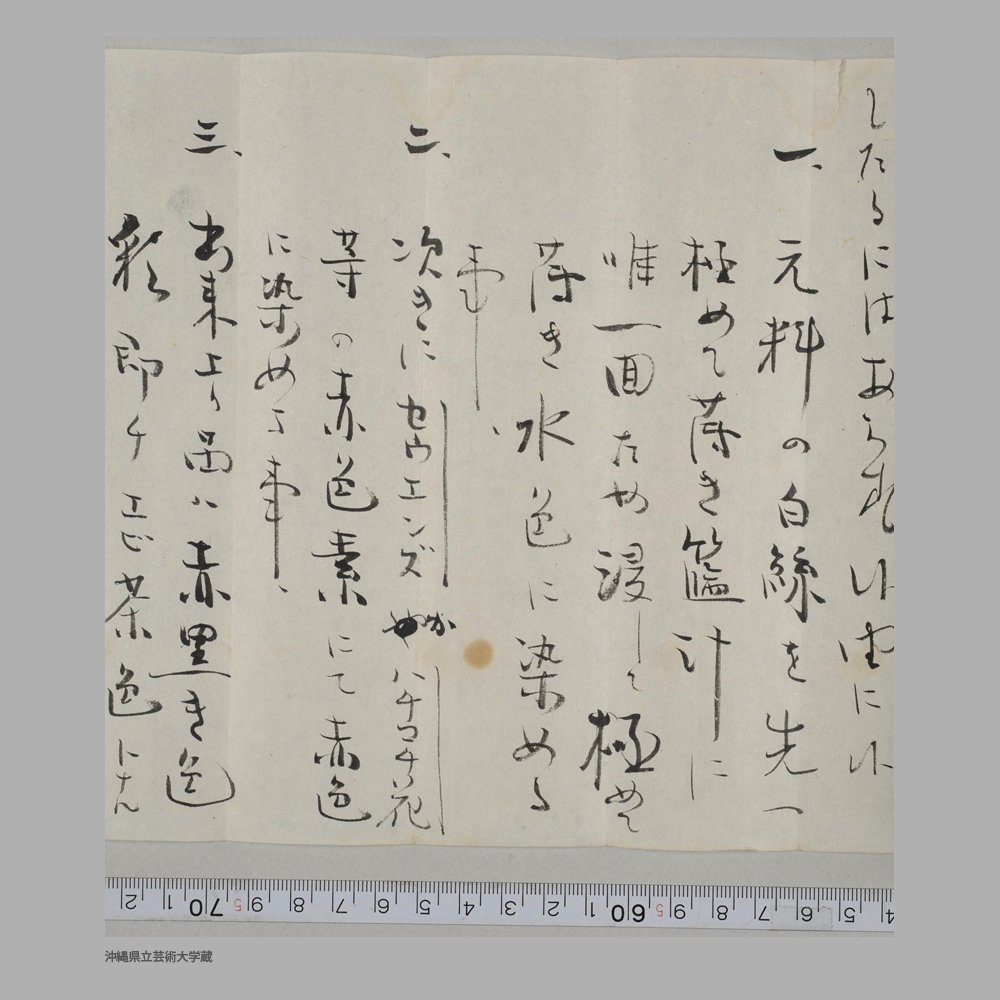 したるにはあられ
一、元料の白絲を先へ
極めて薄き籃汁に
唯一回ため浸して極めて
薄き水色に染める
事、
次きにセウエンズ ハチコチ花
二、
等の赤色素にて赤色
に染める事、
三、出来上り品は赤黒き色
彩即チ 茶色トナル
2 1 70 5 9 8 7 6 5 4 3 2 1 60 5 9 8 7 6 5 4
沖縄県立芸術大学蔵